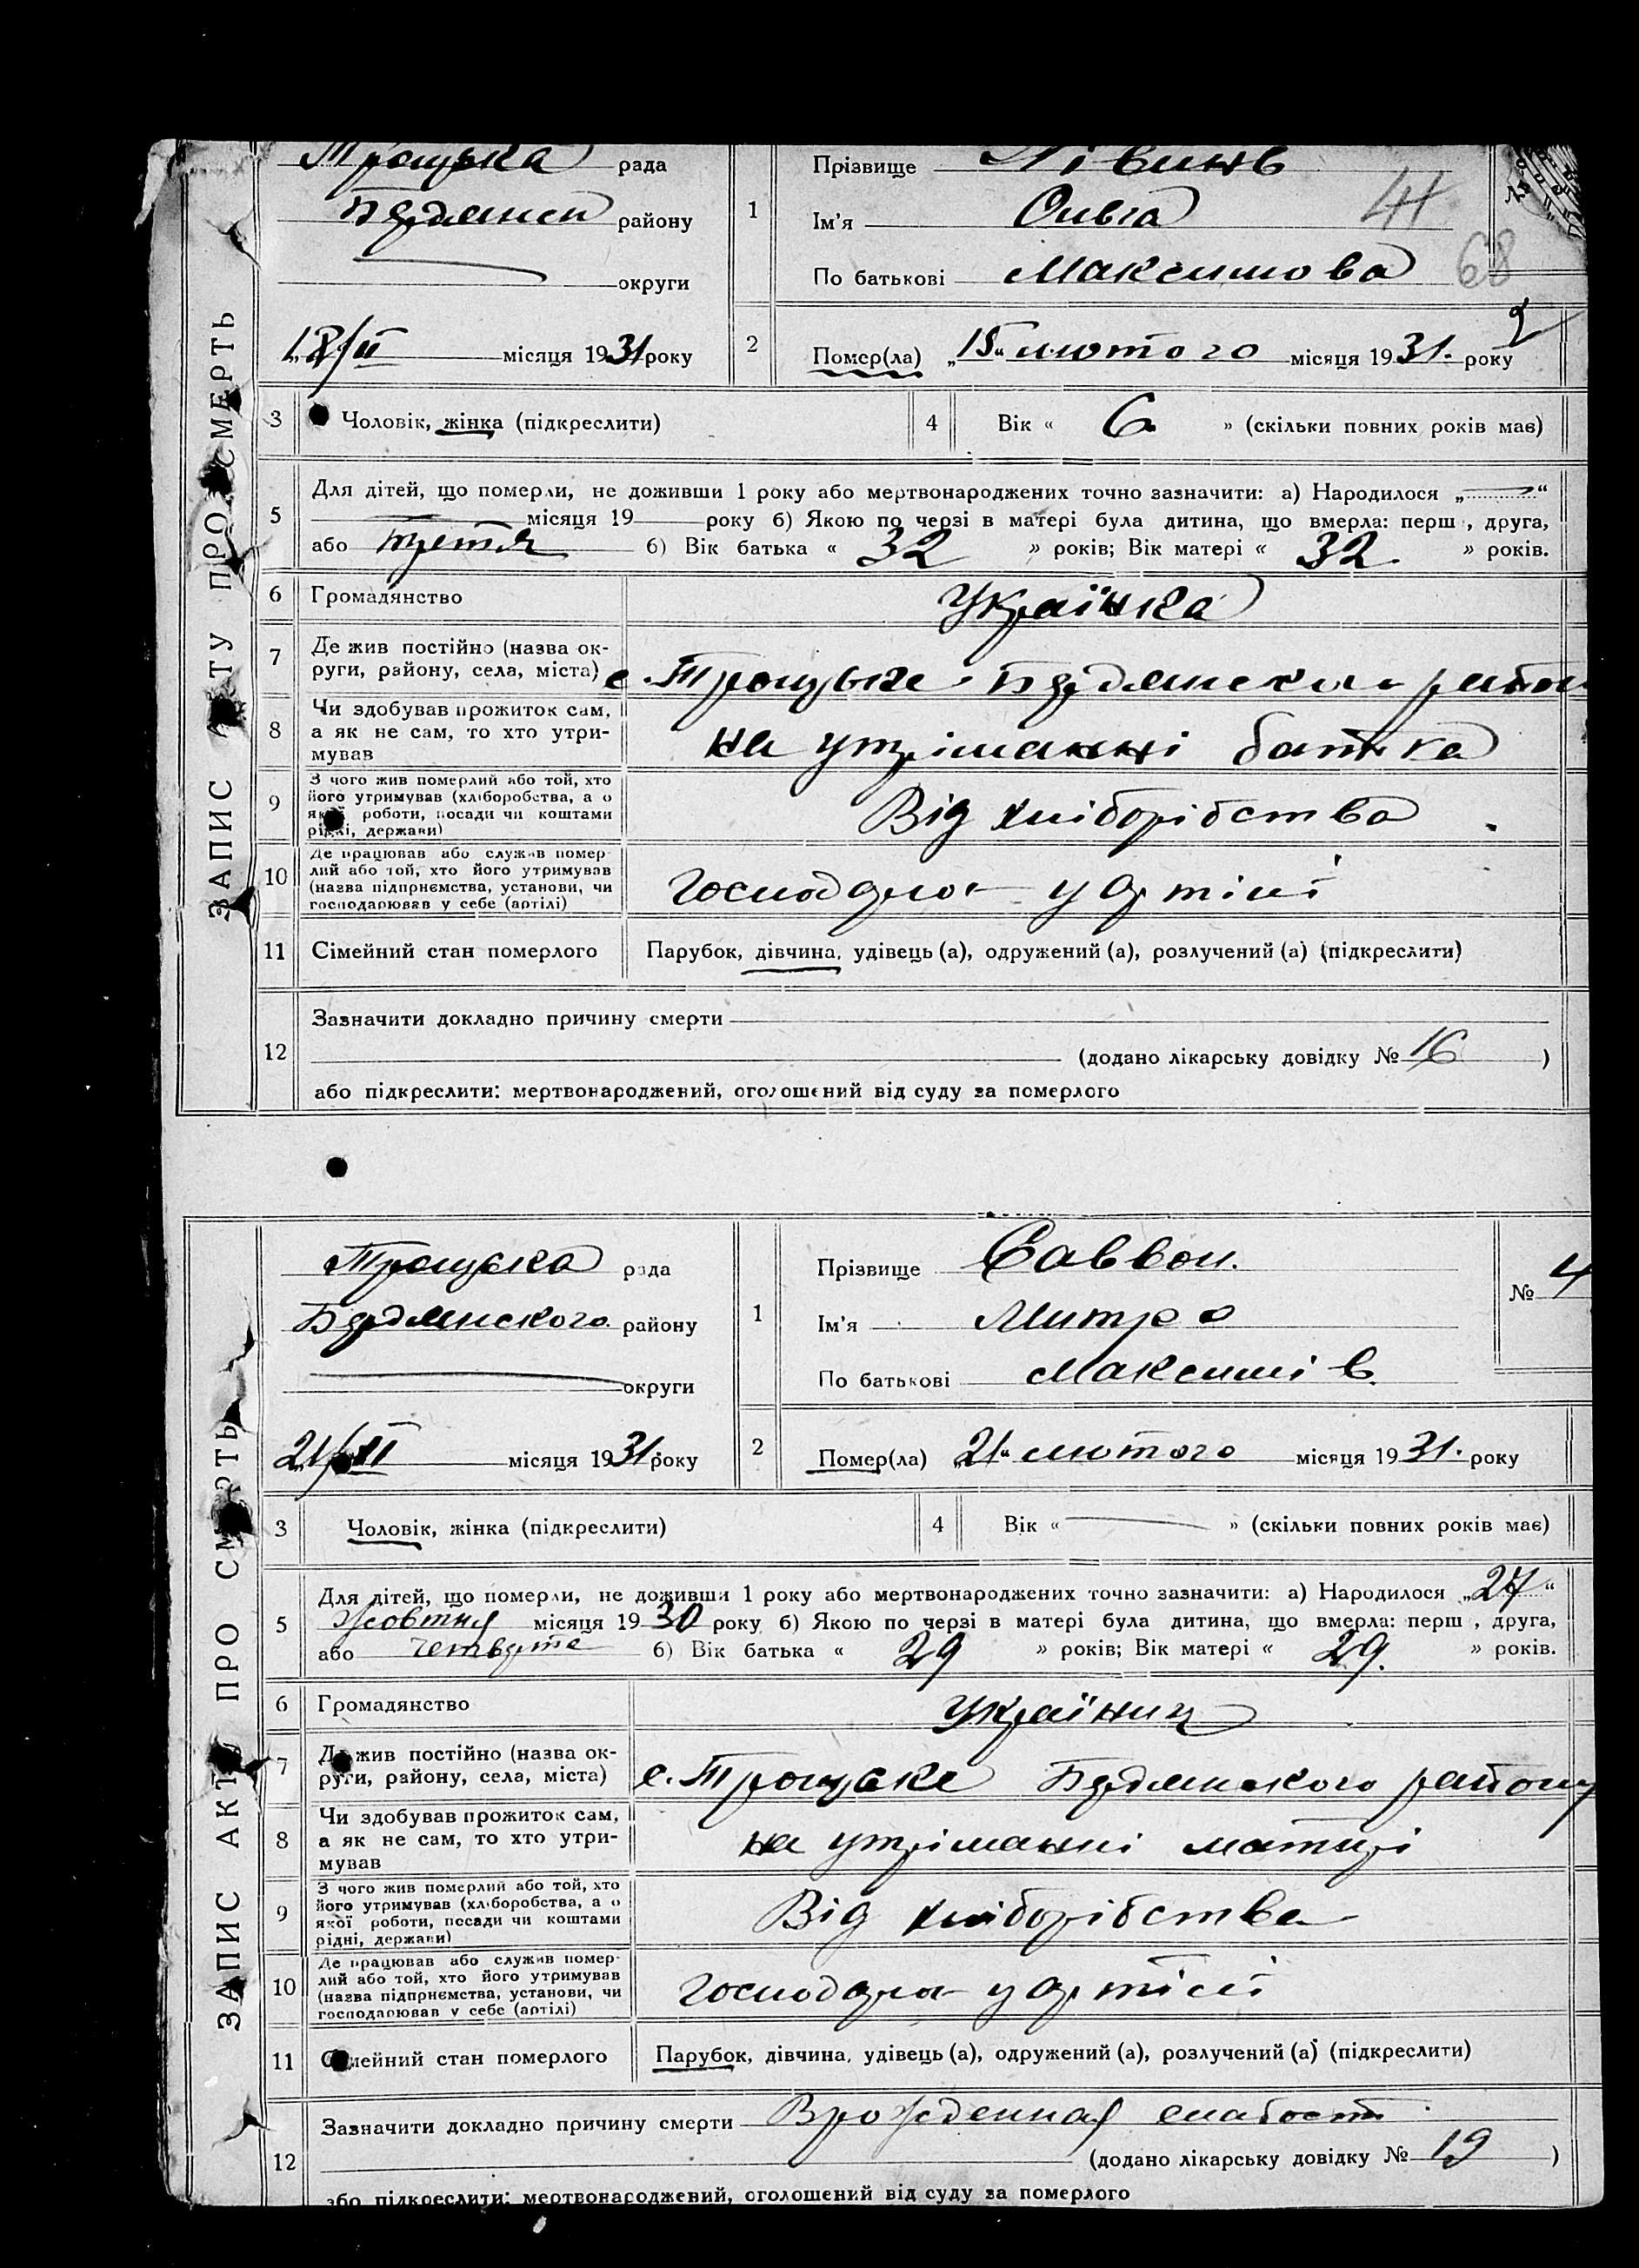 ЗАПИС АКТУ ПРО СМЕРТЬ
Троцька рада
Бердянськ району
округи
18/II місяця 1931 року
1
Прізвище Півинь
Ім'я Ольга
По батькові Максимова
41
68
2
Помер(ла) „15“ лютого місяця 1931. року
3 Чоловік, жінка (підкреслити)
4 Вік « 6 » (скільки повних років має)
5 Для дітей, що померли, не доживши 1 року або мертвонароджених точно зазначити: а) Народилося „ “
місяця 19 року б) Якою по черзі в матері була дитина, що вмерла: перш , друга,
або третя б) Вік батька « 32 » років; Вік матері « 32 » років.
6 Громадянство Українка
7 Де жив постійно (назва округи, району, села, міста) с. Троцьке Бердянского
8 Чи здобував прожиток сам, а як не сам, то хто утримував
на утріманні батька
9 З чого жив померлий або той, хто
його утримував (хліборобства, а о
якої роботи, посади чи коштами
рідні, держави)
Від хліборібства
10 Де працював або служив помер-
лий або той, хто його утримував
(назва підприємства, установи, чи
господарював у себе (артілі)
у артілі
11 Сімейний стан померлого Парубок, дівчина, удівець (а), одружений (а), розлучений (а) (підкреслити)
12 Зазначити докладно причину смерти
(додано лікарську довідку № 16 )
або підкреслити: мертвонароджений, оголошений від суду за померлого
ЗАПИС АКТУ ПРО СМЕРТЬ
Троцька рада
Бердянского району
округи
21/II місяця 1931 року
1
Прізвище Саввон.
Ім'я Митро
По батькові Максимів.
№ 4
2
Помер(ла) „21“ лютого місяця 1931. року
3 Чоловік, жінка (підкреслити)
4 Вік « » (скільки повних років має)
5 Для дітей, що померли, не доживши 1 року або мертвонароджених точно зазначити: а) Народилося „27“
жовтня місяця 1930 року б) Якою по черзі в матері була дитина, що вмерла: перш , друга,
або четверте б) Вік батька « 29 » років; Вік матері « 29. » років.
6 Громадянство українец
7 Де жив постійно (назва ок-
руги, району, села, міста)
с. Троцьке Бердянского району
8 Чи здобував прожиток сам,
а як не сам, то хто утри-
мував
на утріманні матері
9 З чого жив померлий або той, хто
його утримував (хліборобства, а о
якої роботи, посади чи коштами
рідні, держави)
Від хліборібства
10 Де працював або служив помер-
лий або той, хто його утримував
(назва підприємства, установи, чи
господарював у себе (артілі)
у артілі
11 Сімейний стан померлого Парубок, дівчина, удівець (а), одружений (а), розлучений (а) (підкреслити)
12 Зазначити докладно причину смерти Врожденная слабость
(додано лікарську довідку № 19 )
або підкреслити: мертвонароджений, оголошений від суду за померлого